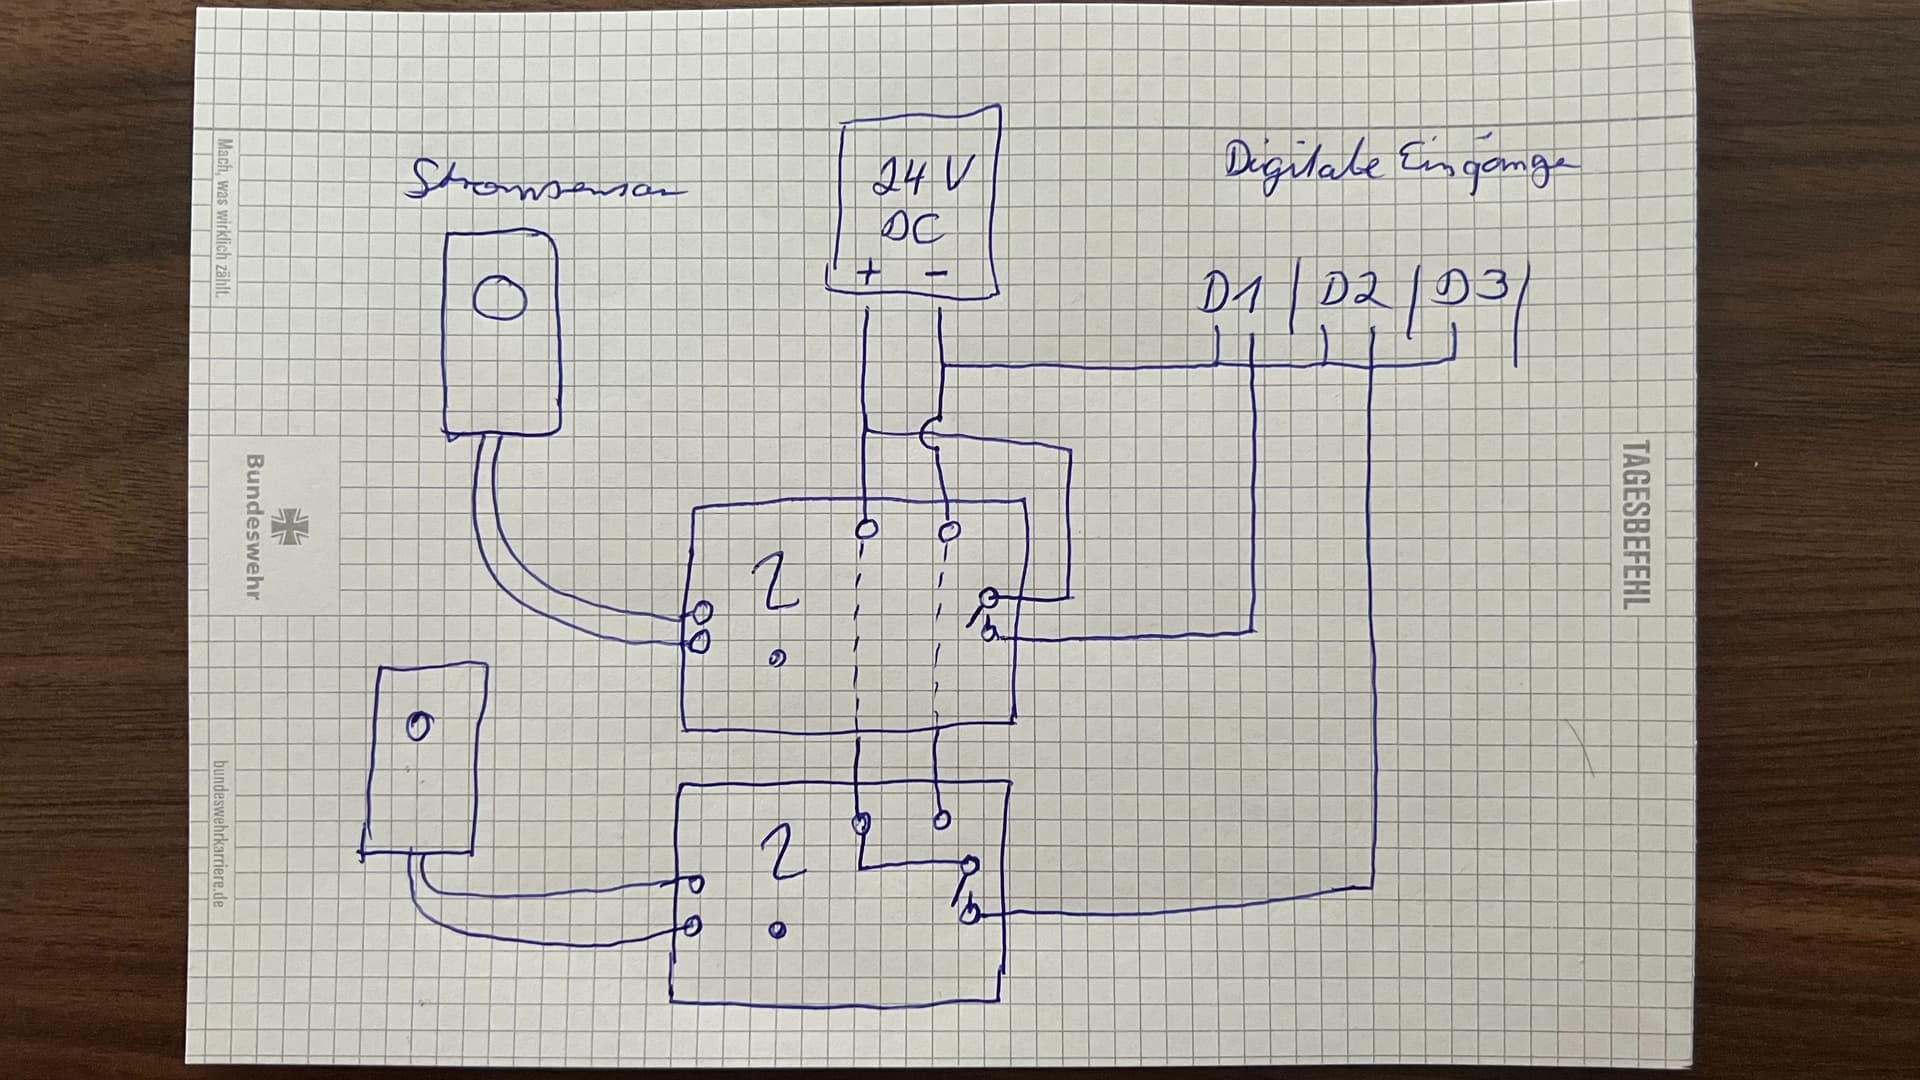 Stromsensor
24 V
DC
+ -
Digitale Eingänge
D1 | D2 | D3 |
2
2
Mach, was wirklich zählt.
Bundeswehr
bundeswehrkarriere.de
TAGESBEFEHL